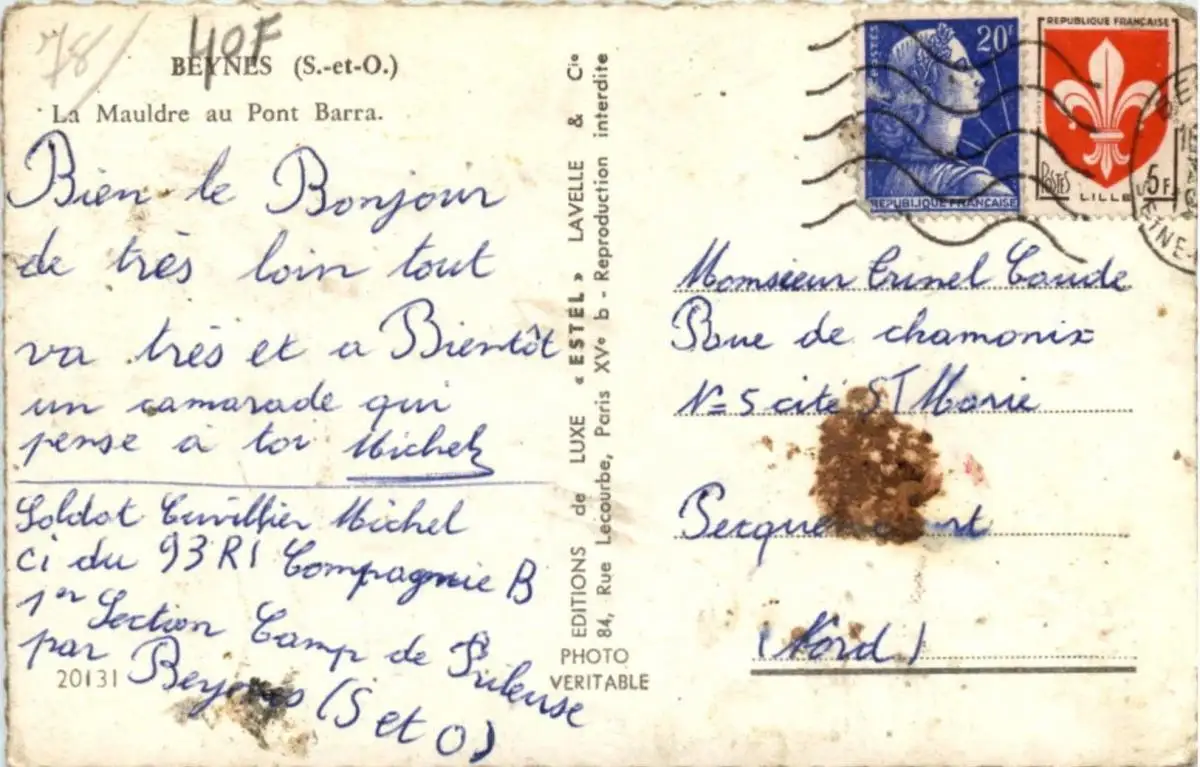 78/
40F
BEYNES (S.-et-O.)
La Mauldre au Pont Barra.
Bien le Bonjour
de très loin tout
va très et a Bientôt
un camarade qui
pense à toi Michel
Soldat Cuvillier Michel
ci du 93 RI Compagnie B
1er Section Camp de Frileuse
par Beynes (S et O)
20131
EDITIONS de LUXE « ESTEL » LAVELLE & Cie
84, Rue Lecourbe, Paris XVe b - Reproduction interdite
PHOTO
VERITABLE
POSTES
20F
REPUBLIQUE FRANÇAISE
REPUBLIQUE FRANÇAISE
POSTES
5F
LILLE
Monsieur Crinel Caude
Rue de chamonix
N=5 cité ST Marie
(Nord)